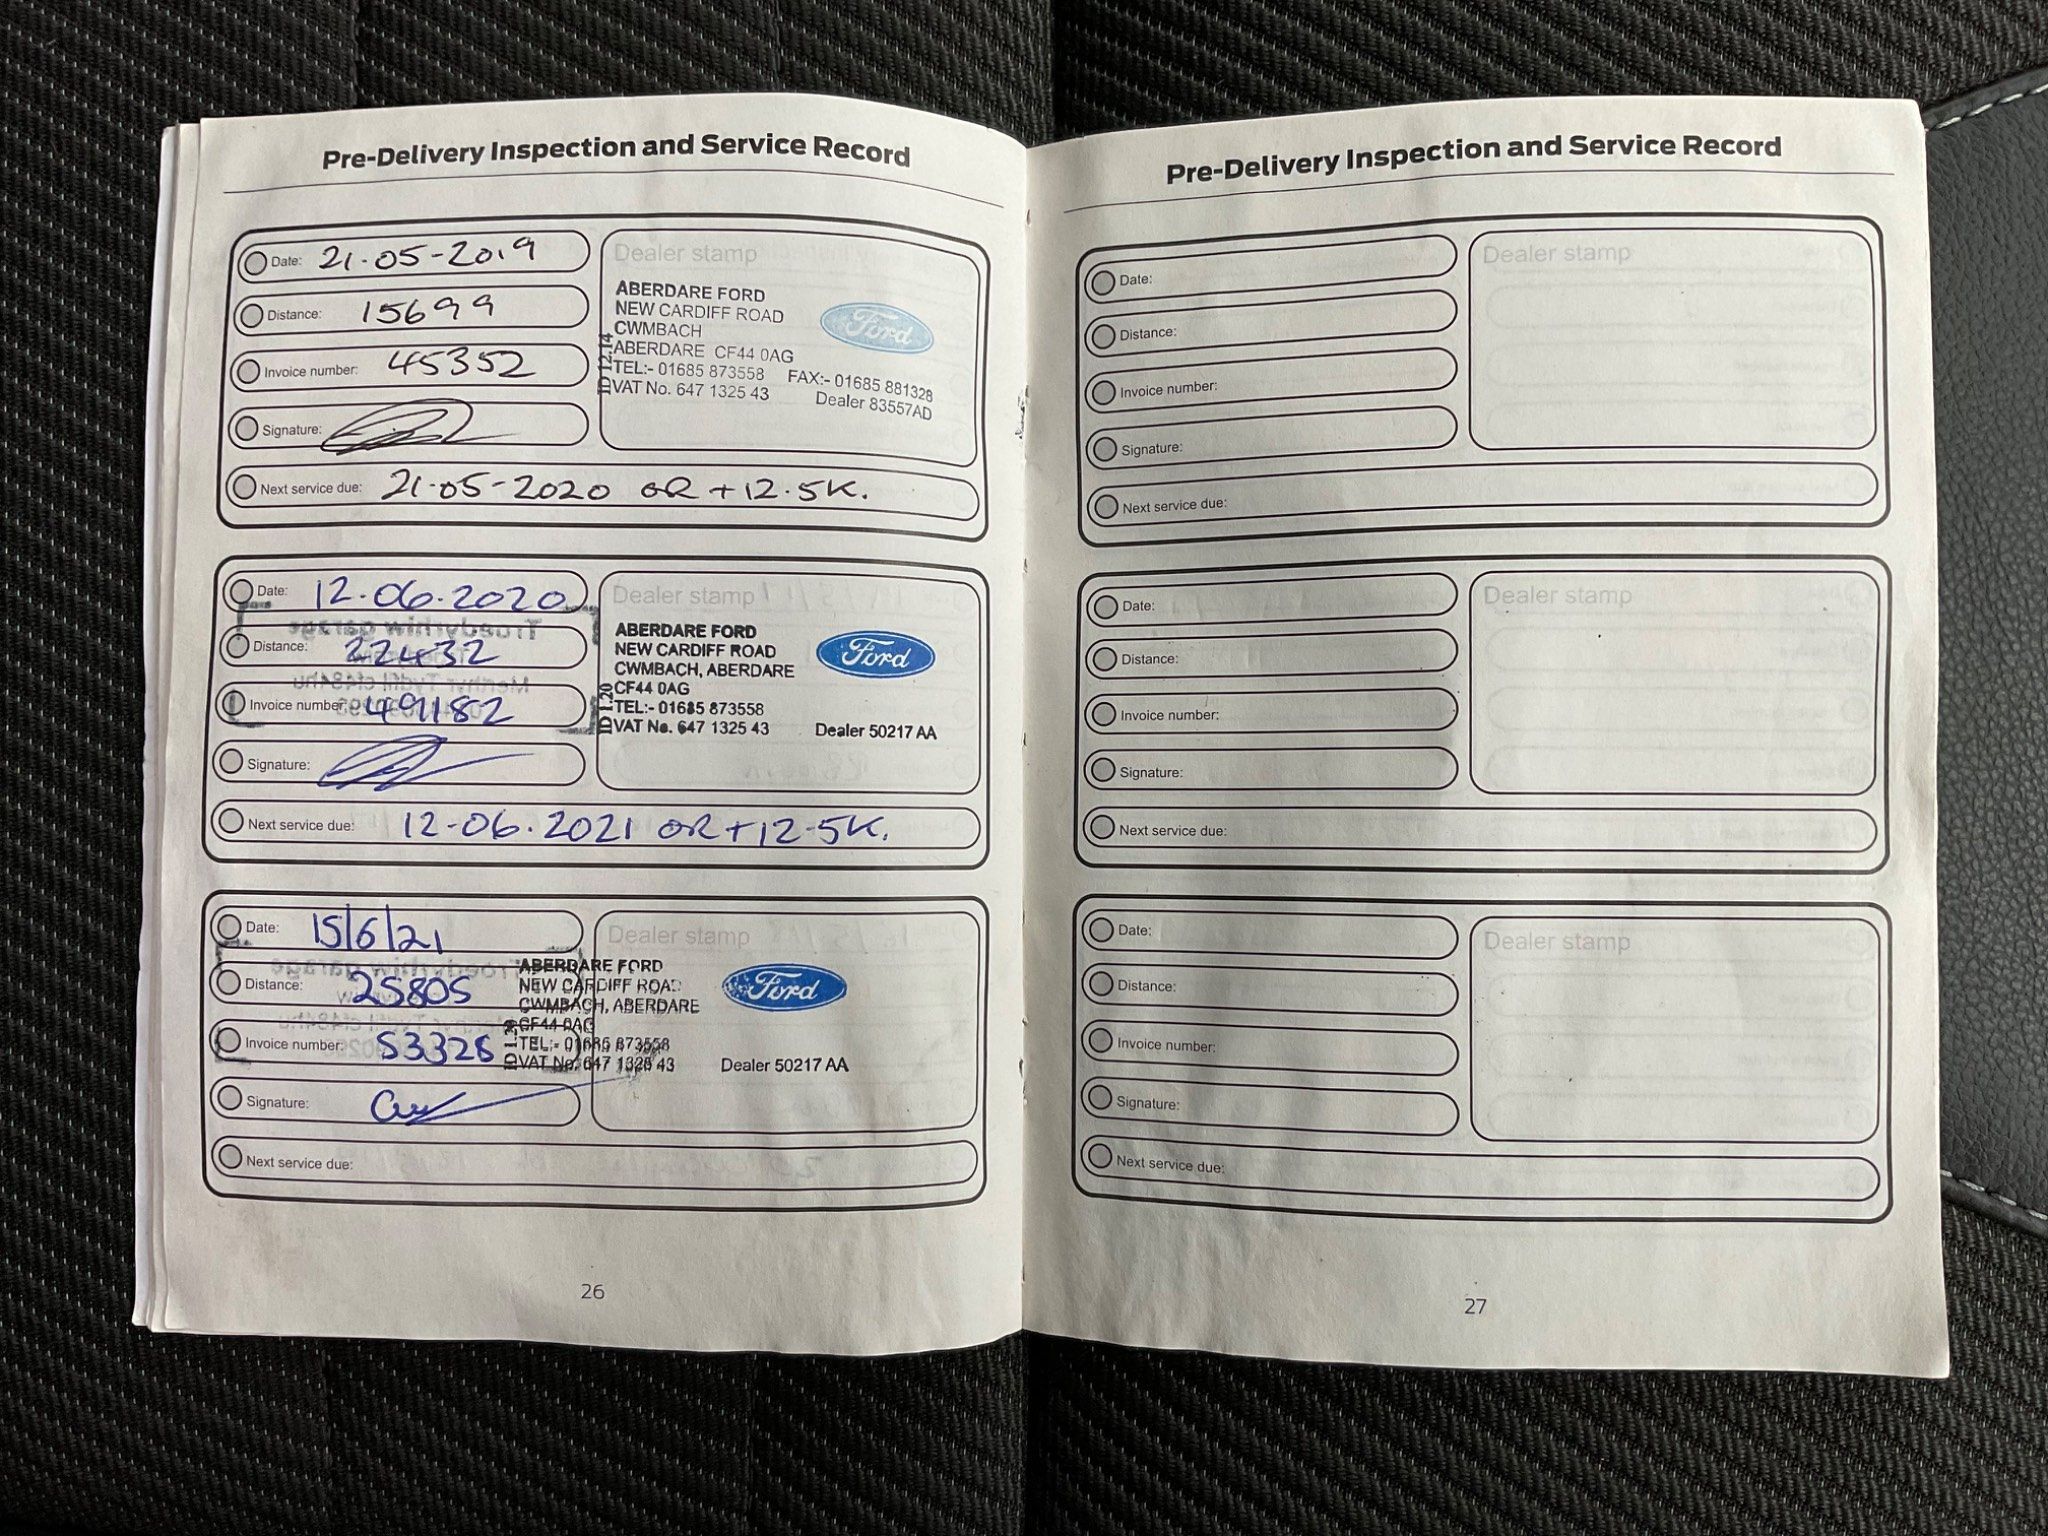 Pre-Delivery Inspection and Service Record
Date: 21-05-2019
Distance: 15699
Invoice number: 45352
Signature:
Next service due: 21-05-2020 OR + 12.5K.
Dealer stamp
ABERDARE FORD
NEW CARDIFF ROAD
CWMBACH
ABERDARE CF44 0AG
TEL:- 01685 873558 FAX:- 01685 881328
VAT No. 647 1325 43 Dealer 83557AD
ID 12.14
Ford
Date: 12.06.2020
Distance: 22432
Invoice number: 49182
Signature:
Next service due: 12-06.2021 OR + 12-5K.
Dealer stamp
ABERDARE FORD
NEW CARDIFF ROAD
CWMBACH, ABERDARE
CF44 0AG
TEL:- 01685 873558
VAT No. 647 1325 43 Dealer 50217 AA
ID 1.20
Ford
Date: 15/6/21
Distance: 25805
Invoice number:
Signature:
Next service due:
Dealer stamp
ABERDARE FORD
NEW CARDIFF ROAD
CWMBACH, ABERDARE
CF44 0AG
TEL:- 01685 873558
VAT No. 647 1325 43 Dealer 50217 AA
ID 1.20
Ford
26
Pre-Delivery Inspection and Service Record
Date:
Distance:
Invoice number:
Signature:
Next service due:
Dealer stamp
Date:
Distance:
Invoice number:
Signature:
Next service due:
Dealer stamp
Date:
Distance:
Invoice number:
Signature:
Next service due:
Dealer stamp
27